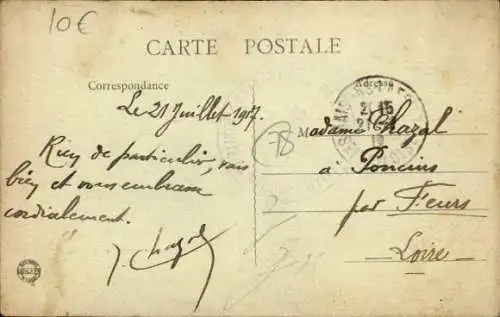 10€
CARTE POSTALE
Correspondance
Adresse
Le 21 Juillet 1917.
Madame Chazal
Rien de particulier, vais
à Poncins
bien et vous embrasse
par Feurs
cordialement.
Loire
J. Chazal